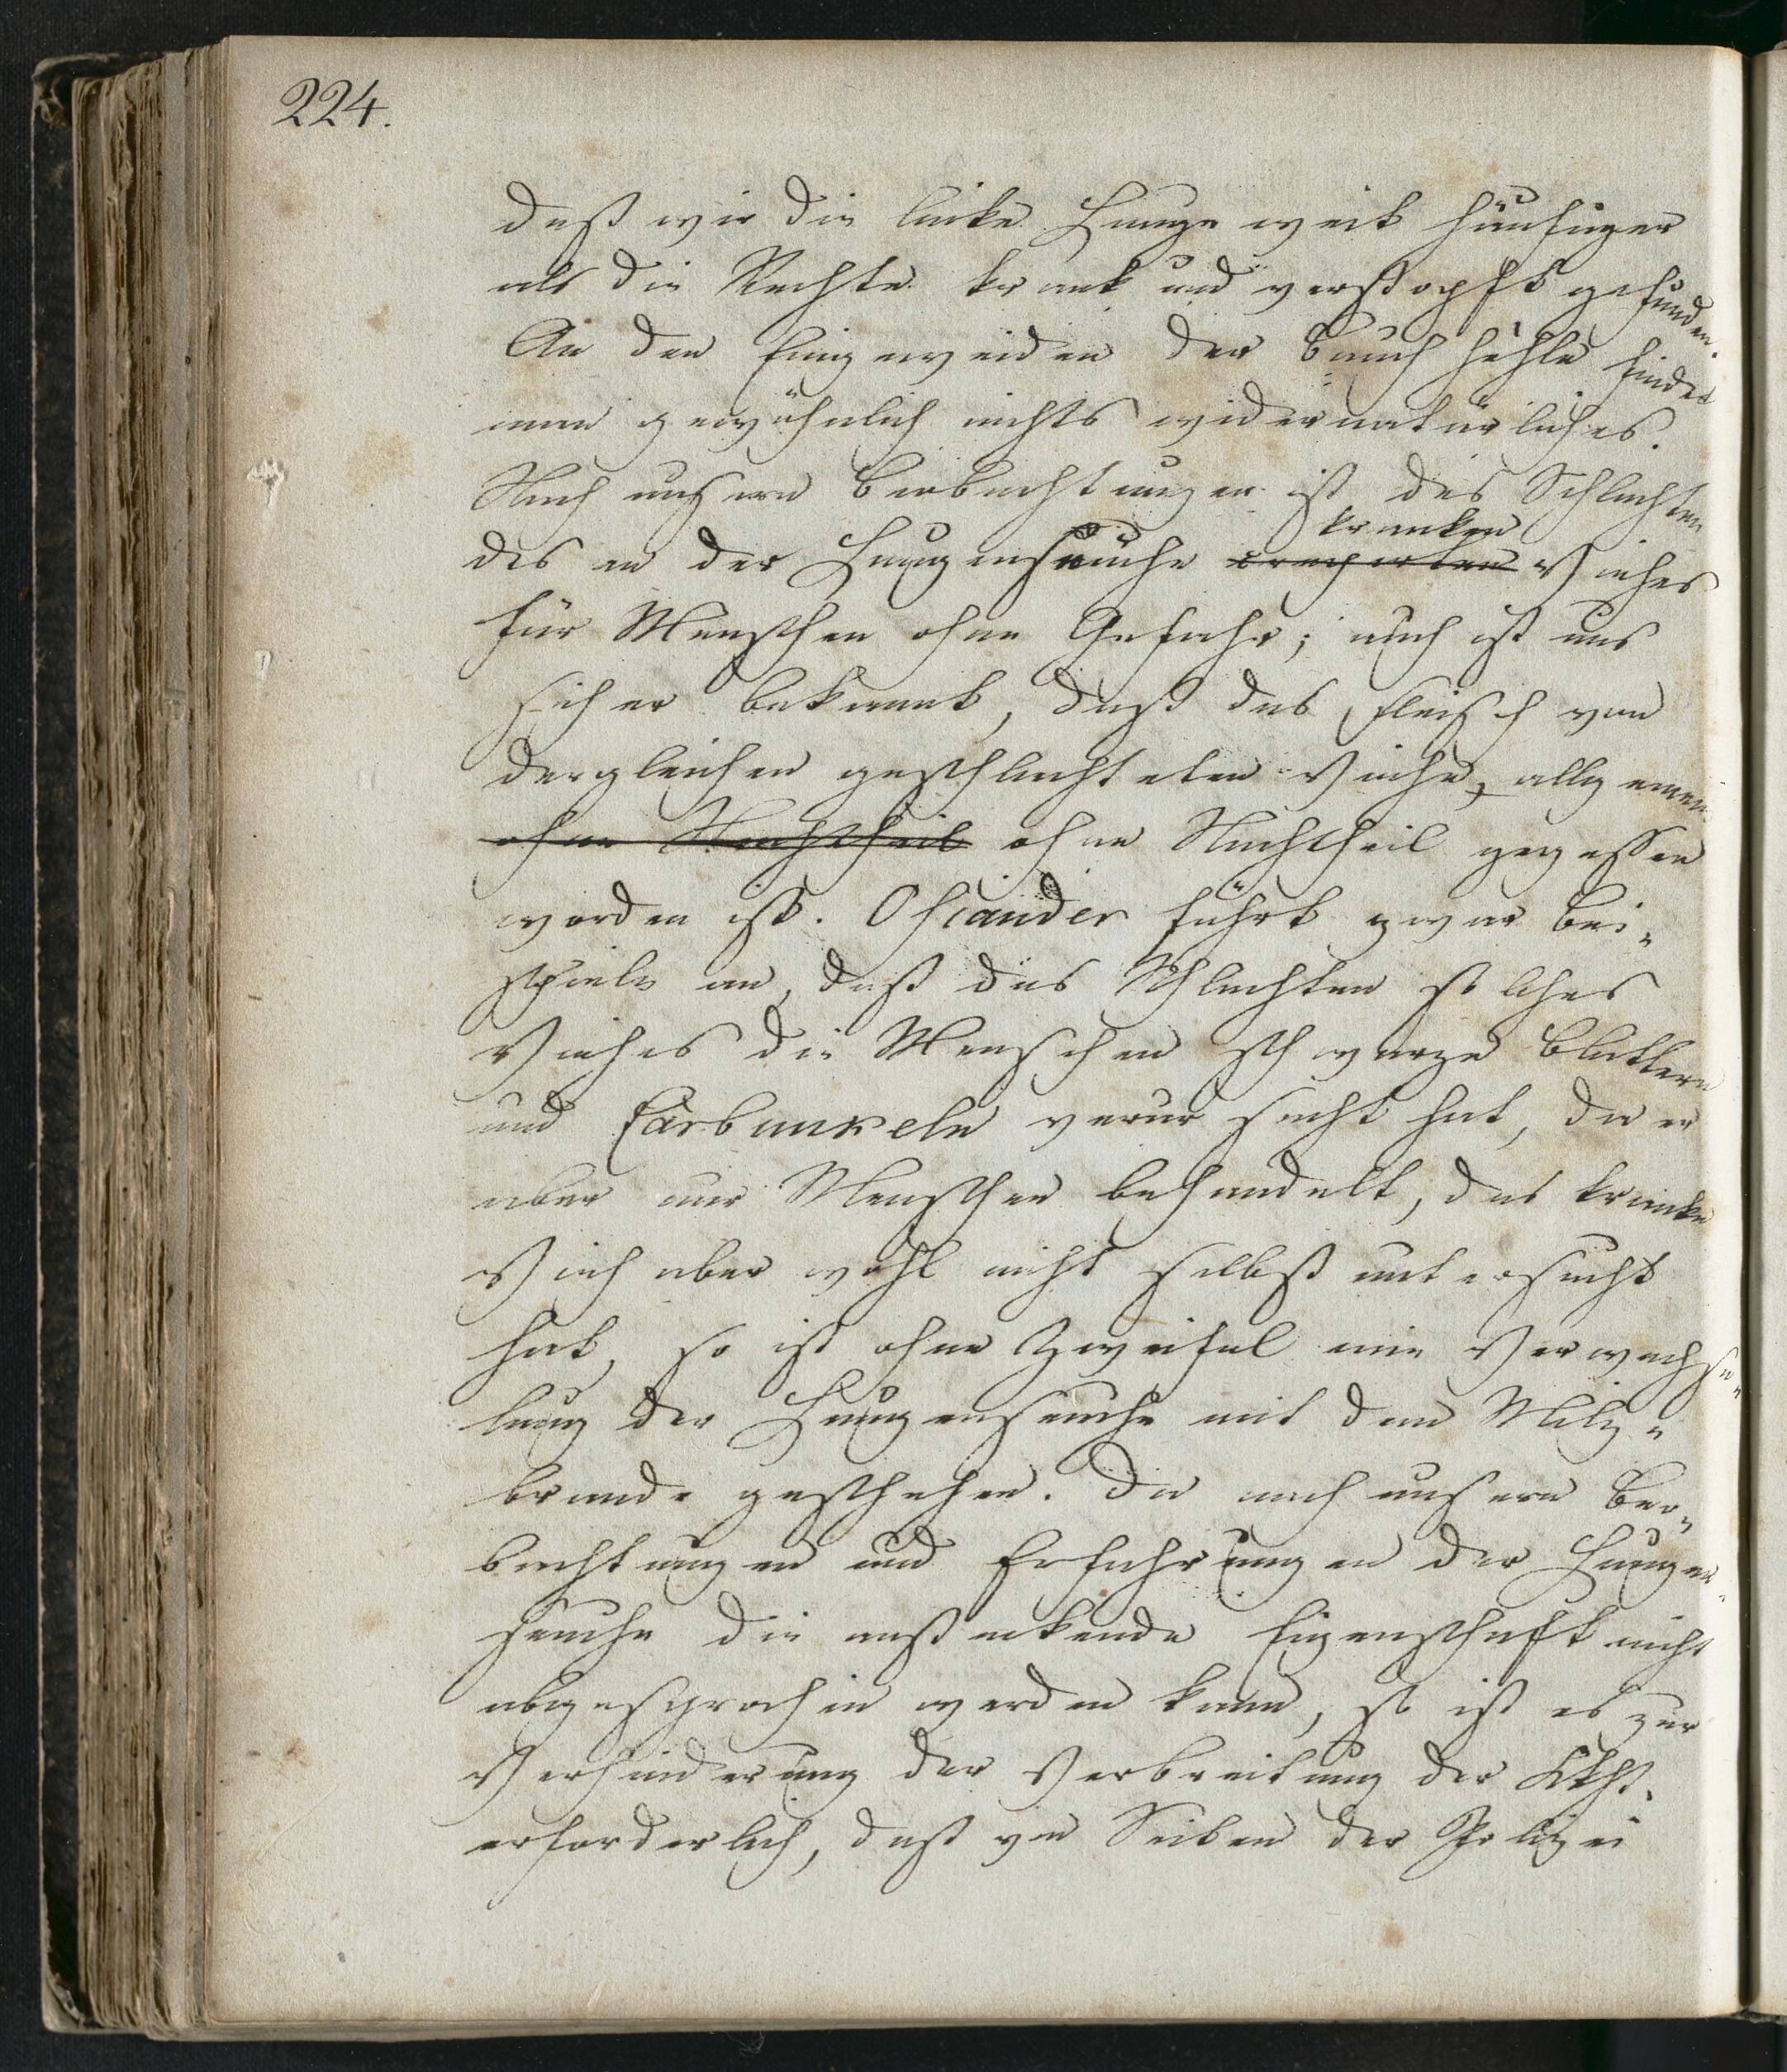 224.
daß wir die linke Lunge weit häufiger
als die Rechte krank und verstopft gefunden.
An den Eingeweiden der Bauchhöhle findet
man gewöhnlich nichts widernatürliches.
Nach unsern Beobachtungen ist das Schlachten
kranken
des an der Lungenseuche crepirten Viehes
für Menschen ohne Gefahr; auch ist uns
sicher bekannt, daß das Fleisch von
dergleichen geschlachteten Viehe, allgemein
ohne Nachtheil ohne Nachtheil gegessen
worden ist. Osiander führt zwar Bei-
spiele an, daß das Schlachten solches
Viehes die Menschen schwarze Blattern
und Carbunkeln verursacht hat, da er
aber nur Menschen behandelt, das kranke
Vieh aber wohl nicht selbst untersucht
hat, so ist ohne Zweifel eine Verwechse-
lung der Lungenseuche mit dem Milz-
brande geschehen. Da nach unsern Beo-
bachtungen und Erfahrungen der Lungen-
seuche die ansteckende Eigenschaft nicht
abgesprochen werden kann, so ist es zur
Verhinderung der Verbreitung der
erforderlich, daß von Seiten der Polizei